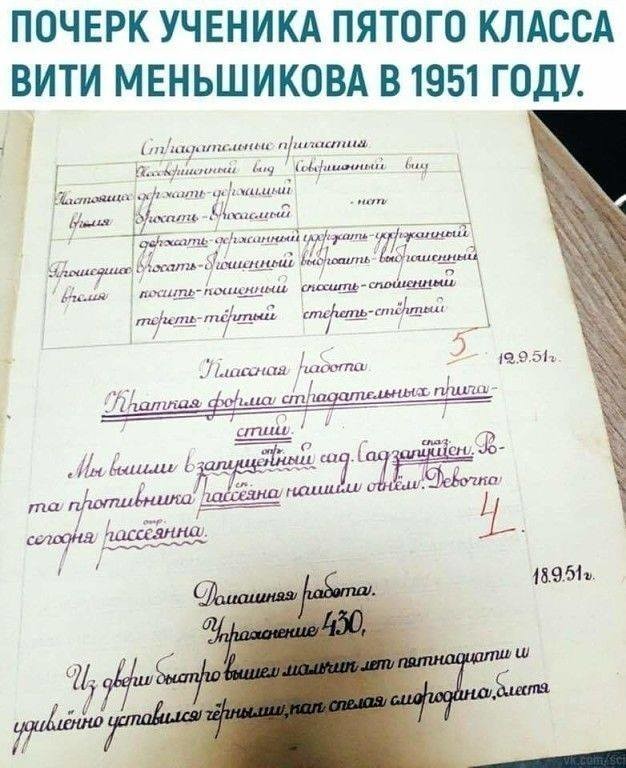 ПОЧЕРК УЧЕНИКА ПЯТОГО КЛАССА
ВИТИ МЕНЬШИКОВА В 1951 ГОДУ.
Страдательные причастия
Несовершенный вид Совершенный вид
Настоящее держать-держимый
время бросать-бросаемый - нет
держать-держанный удержать-удержанный
Прошедшее бросать-брошенный выбросить-выброшенный
время косить-кошенный скосить-скошенный
тереть-тёртый стереть-стёртый
5
Классная работа 12.9.51г.
Краткая форма страдательных прича-
стий.
опр. сказ.
Мы вышли в запущенный сад. Сад запущен. Ро-
ск.
та противника рассеяна нашим огнём. Девочка
опр.
сегодня рассеянна.
4
Домашняя работа. 18.9.51г.
Упражнение 430,
Из двери быстро вышел мальчик лет пятнадцати и
удивлённо уставился чёрными, как спелая смородина, блестя
vk.com/sci